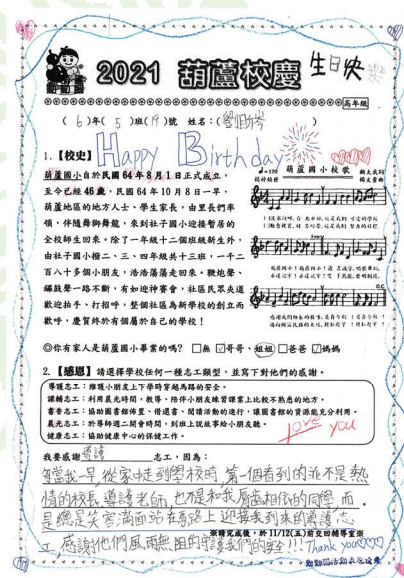 2021 葫蘆校慶 生日快樂
高年級
(6)年(5)班(19)號 姓名:
Happy Birthday
1.【校史】
葫蘆國小自於民國64年8月1日正式成立,
至今已經46歲,民國64年10月8日一早,
葫蘆地區的地方人士、學生家長,由里長們率
領,伴隨舞獅舞龍,來到社子國小迎接暫居的
全校師生回來。除了一年級十二個班級新生外,
由社子國小撥二、三、四年級共十三班,一千二
百八十多個小朋友,浩浩蕩蕩走回來。鞭炮聲、
鑼鼓聲一路不斷,有如迎神賽會,社區民眾夾道
歡迎拍手、打招呼,整個社區為新學校的創立而
歡呼,慶賀終於有個屬於自己的學校!
葫蘆國小校歌
◎你有家人是葫蘆國小畢業的嗎? □無 ☑哥哥、姐姐 □爸爸 ☑媽媽
2.【感恩】請選擇學校任何一種志工類型,並寫下對他們的感謝。
導護志工:維護小朋友上下學時穿越馬路的安全。
課輔志工:利用晨光時間,教導、陪伴小朋友練習課業上比較不熟悉的地方。
書香志工:協助圖書館佈置、借還書、閱讀活動的進行,讓圖書館的資源能充分利用。
晨光志工:於導師週二開會時間,到班上說故事給小朋友聽。
健康志工:協助健康中心的保健工作。
love you
我要感謝導護志工,因為:
每當我一早,從家中走到學校時,第一個看到的並不是熱
情的校長、導護老師,也不是和我脣齒相依的同學,而
是總是笑容滿面站在馬路上迎接我到來的導護志
工,感謝他們風雨無阻的守護我們的安全!!!Thank you
※請完成後,於11/12(五)前交回輔導室※